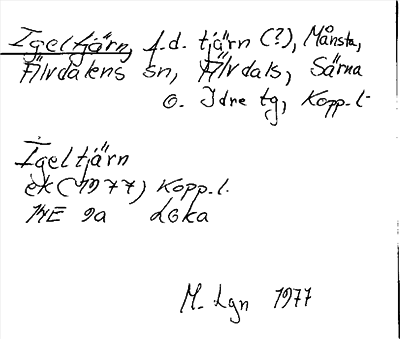 Igeltjärn, f.d. tjärn (?), Månsta,
Älvdalens sn, Älvdals, Särna
o. Idre tg, Kopp.l.
Igeltjärn
ek (1977) Kopp.l.
14E 9a LGka
M. Lgn 1977